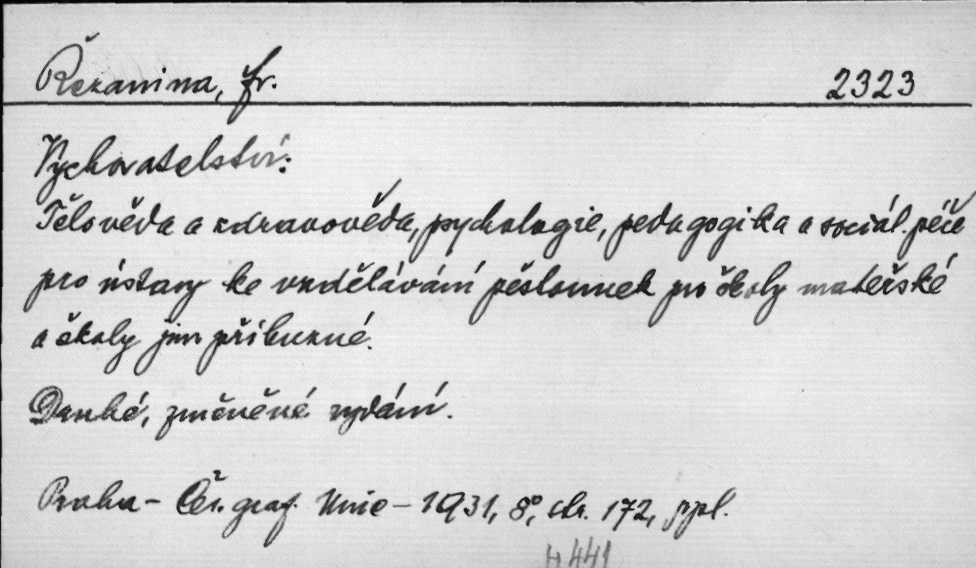 Řezanina, Fr. 2323
Vychovatelství:
Tělověda a zdravověda, psychologie, pedagogika a sociál. péče
pro ústavy ke vzdělávání pěstounek pro školy mateřské
a školy jim příbuzné.
Druhé, změněné vydání.
Praha - Čs. graf. Unie - 1931, 8°, str. 172, ppl.
H 441